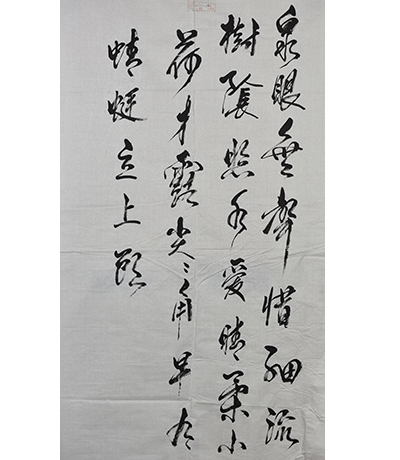 泉眼無聲惜細流
樹陰照水愛晴柔小
荷才露尖々角早有
蜻蜓立上頭